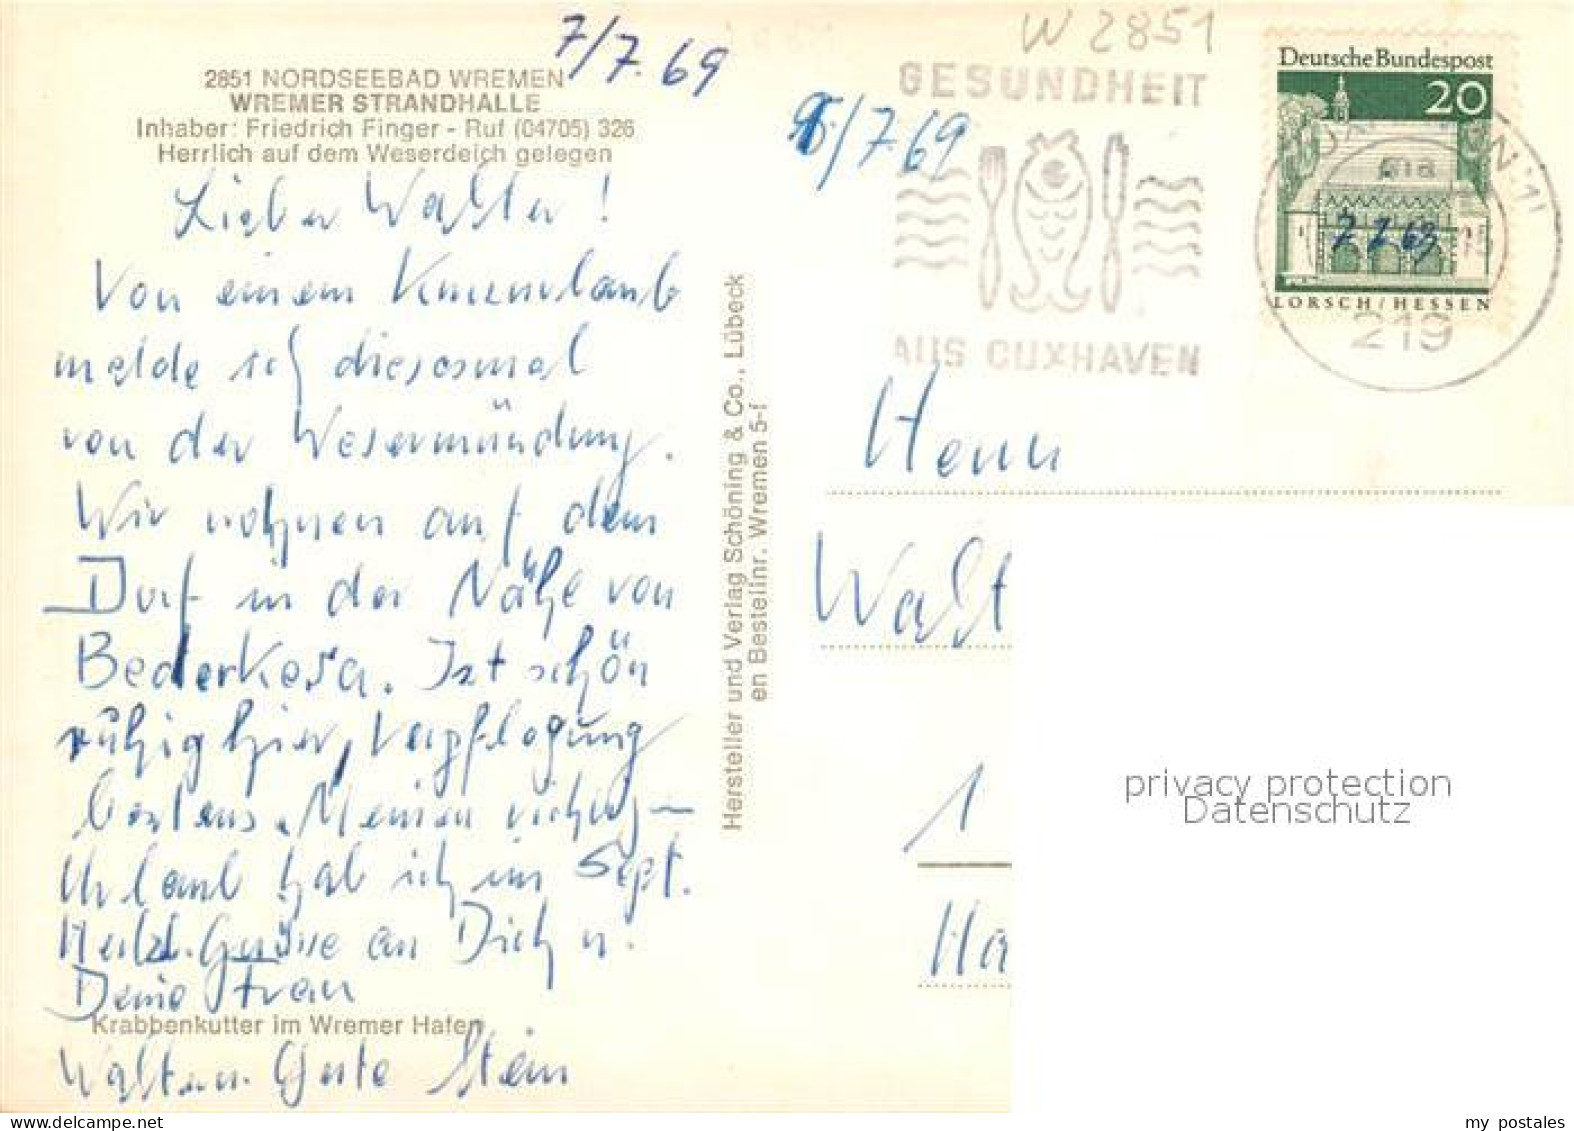 7/7.69
W 2851
2851 NORDSEEBAD WREMEN
WREMER STRANDHALLE
Inhaber: Friedrich Finger - Ruf (04705) 326
Herrlich auf dem Weserdeich gelegen
Lieber Walter!
Von einem Kurzurlaub
melde ich diesesmal
von der Wesermündung.
Wir wohnen auf dem
Dorf in der Nähe von
Bederkesa. Ist schön
ruhig hier, Verpflegung
bestens. Meinen richtig-
Urlaub hab ich im Sept.
Herzl. Grüsse an Dich u.
Deine Frau
Krabbenkutter im Wremer Hafen
Walt. u. Gute Stein
Hersteller und Verlag Schöning & Co., Lübeck
en Bestellnr. Wremen 5-f
/7 69
GESUNDHEIT
AUS CUXHAVEN
Deutsche Bundespost
20
LORSCH/HESSEN
7 7 69
219
Herrn
Walt
1
Ha
privacy protection
Datenschutz
my postales